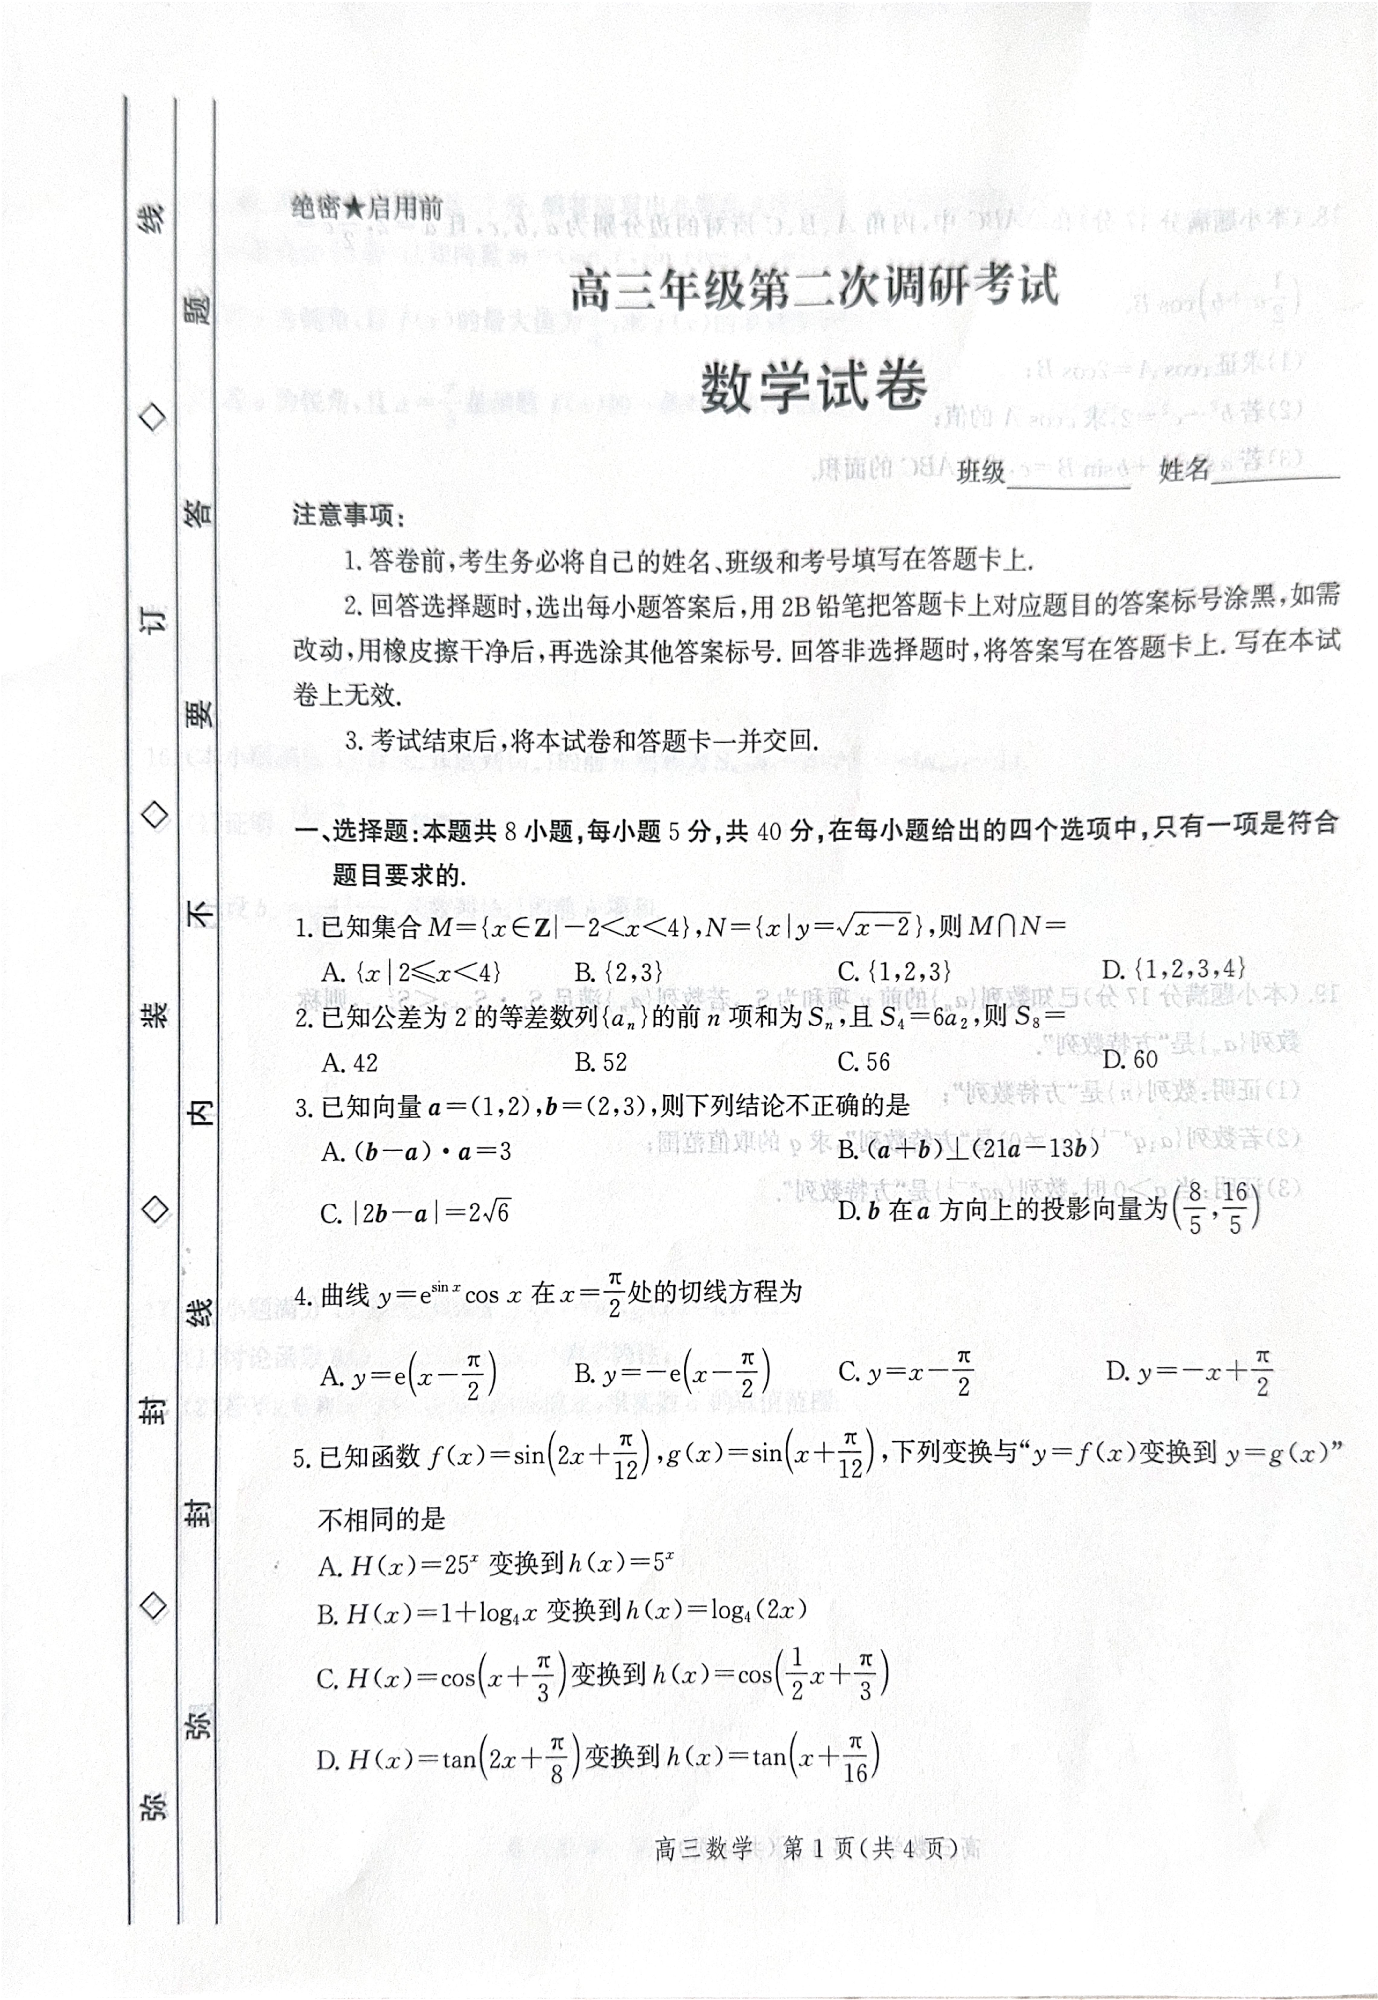 绝密★启用前
高三年级第二次调研考试
数学试卷
班级________ 姓名________
注意事项:
1. 答卷前,考生务必将自己的姓名、班级和考号填写在答题卡上.
2. 回答选择题时,选出每小题答案后,用 2B 铅笔把答题卡上对应题目的答案标号涂黑,如需
改动,用橡皮擦干净后,再选涂其他答案标号. 回答非选择题时,将答案写在答题卡上. 写在本试
卷上无效.
3. 考试结束后,将本试卷和答题卡一并交回.
一、选择题:本题共 8 小题,每小题 5 分,共 40 分,在每小题给出的四个选项中,只有一项是符合
题目要求的.
1. 已知集合 M={x∈Z|-2<x<4},N={x|y=√(x-2)},则 M∩N=
A. {x|2≤x<4} B. {2,3} C. {1,2,3} D. {1,2,3,4}
2. 已知公差为 2 的等差数列{aₙ}的前 n 项和为 Sₙ,且 S₄=6a₂,则 S₈=
A. 42 B. 52 C. 56 D. 60
3. 已知向量 a=(1,2),b=(2,3),则下列结论不正确的是
A. (b-a)·a=3 B. (a+b)⊥(21a-13b)
C. |2b-a|=2√6 D. b 在 a 方向上的投影向量为(8/5,16/5)
4. 曲线 y=e^(sin x) cos x 在 x=π/2 处的切线方程为
A. y=e(x-π/2) B. y=-e(x-π/2) C. y=x-π/2 D. y=-x+π/2
5. 已知函数 f(x)=sin(2x+π/12),g(x)=sin(x+π/12),下列变换与“y=f(x)变换到 y=g(x)”
不相同的是
A. H(x)=25ˣ 变换到 h(x)=5ˣ
B. H(x)=1+log₄x 变换到 h(x)=log₄(2x)
C. H(x)=cos(x+π/3)变换到 h(x)=cos(1/2x+π/3)
D. H(x)=tan(2x+π/8)变换到 h(x)=tan(x+π/16)
高三数学 第 1 页(共 4 页)
弥◇封◇装◇订◇线
弥封线内不要答题